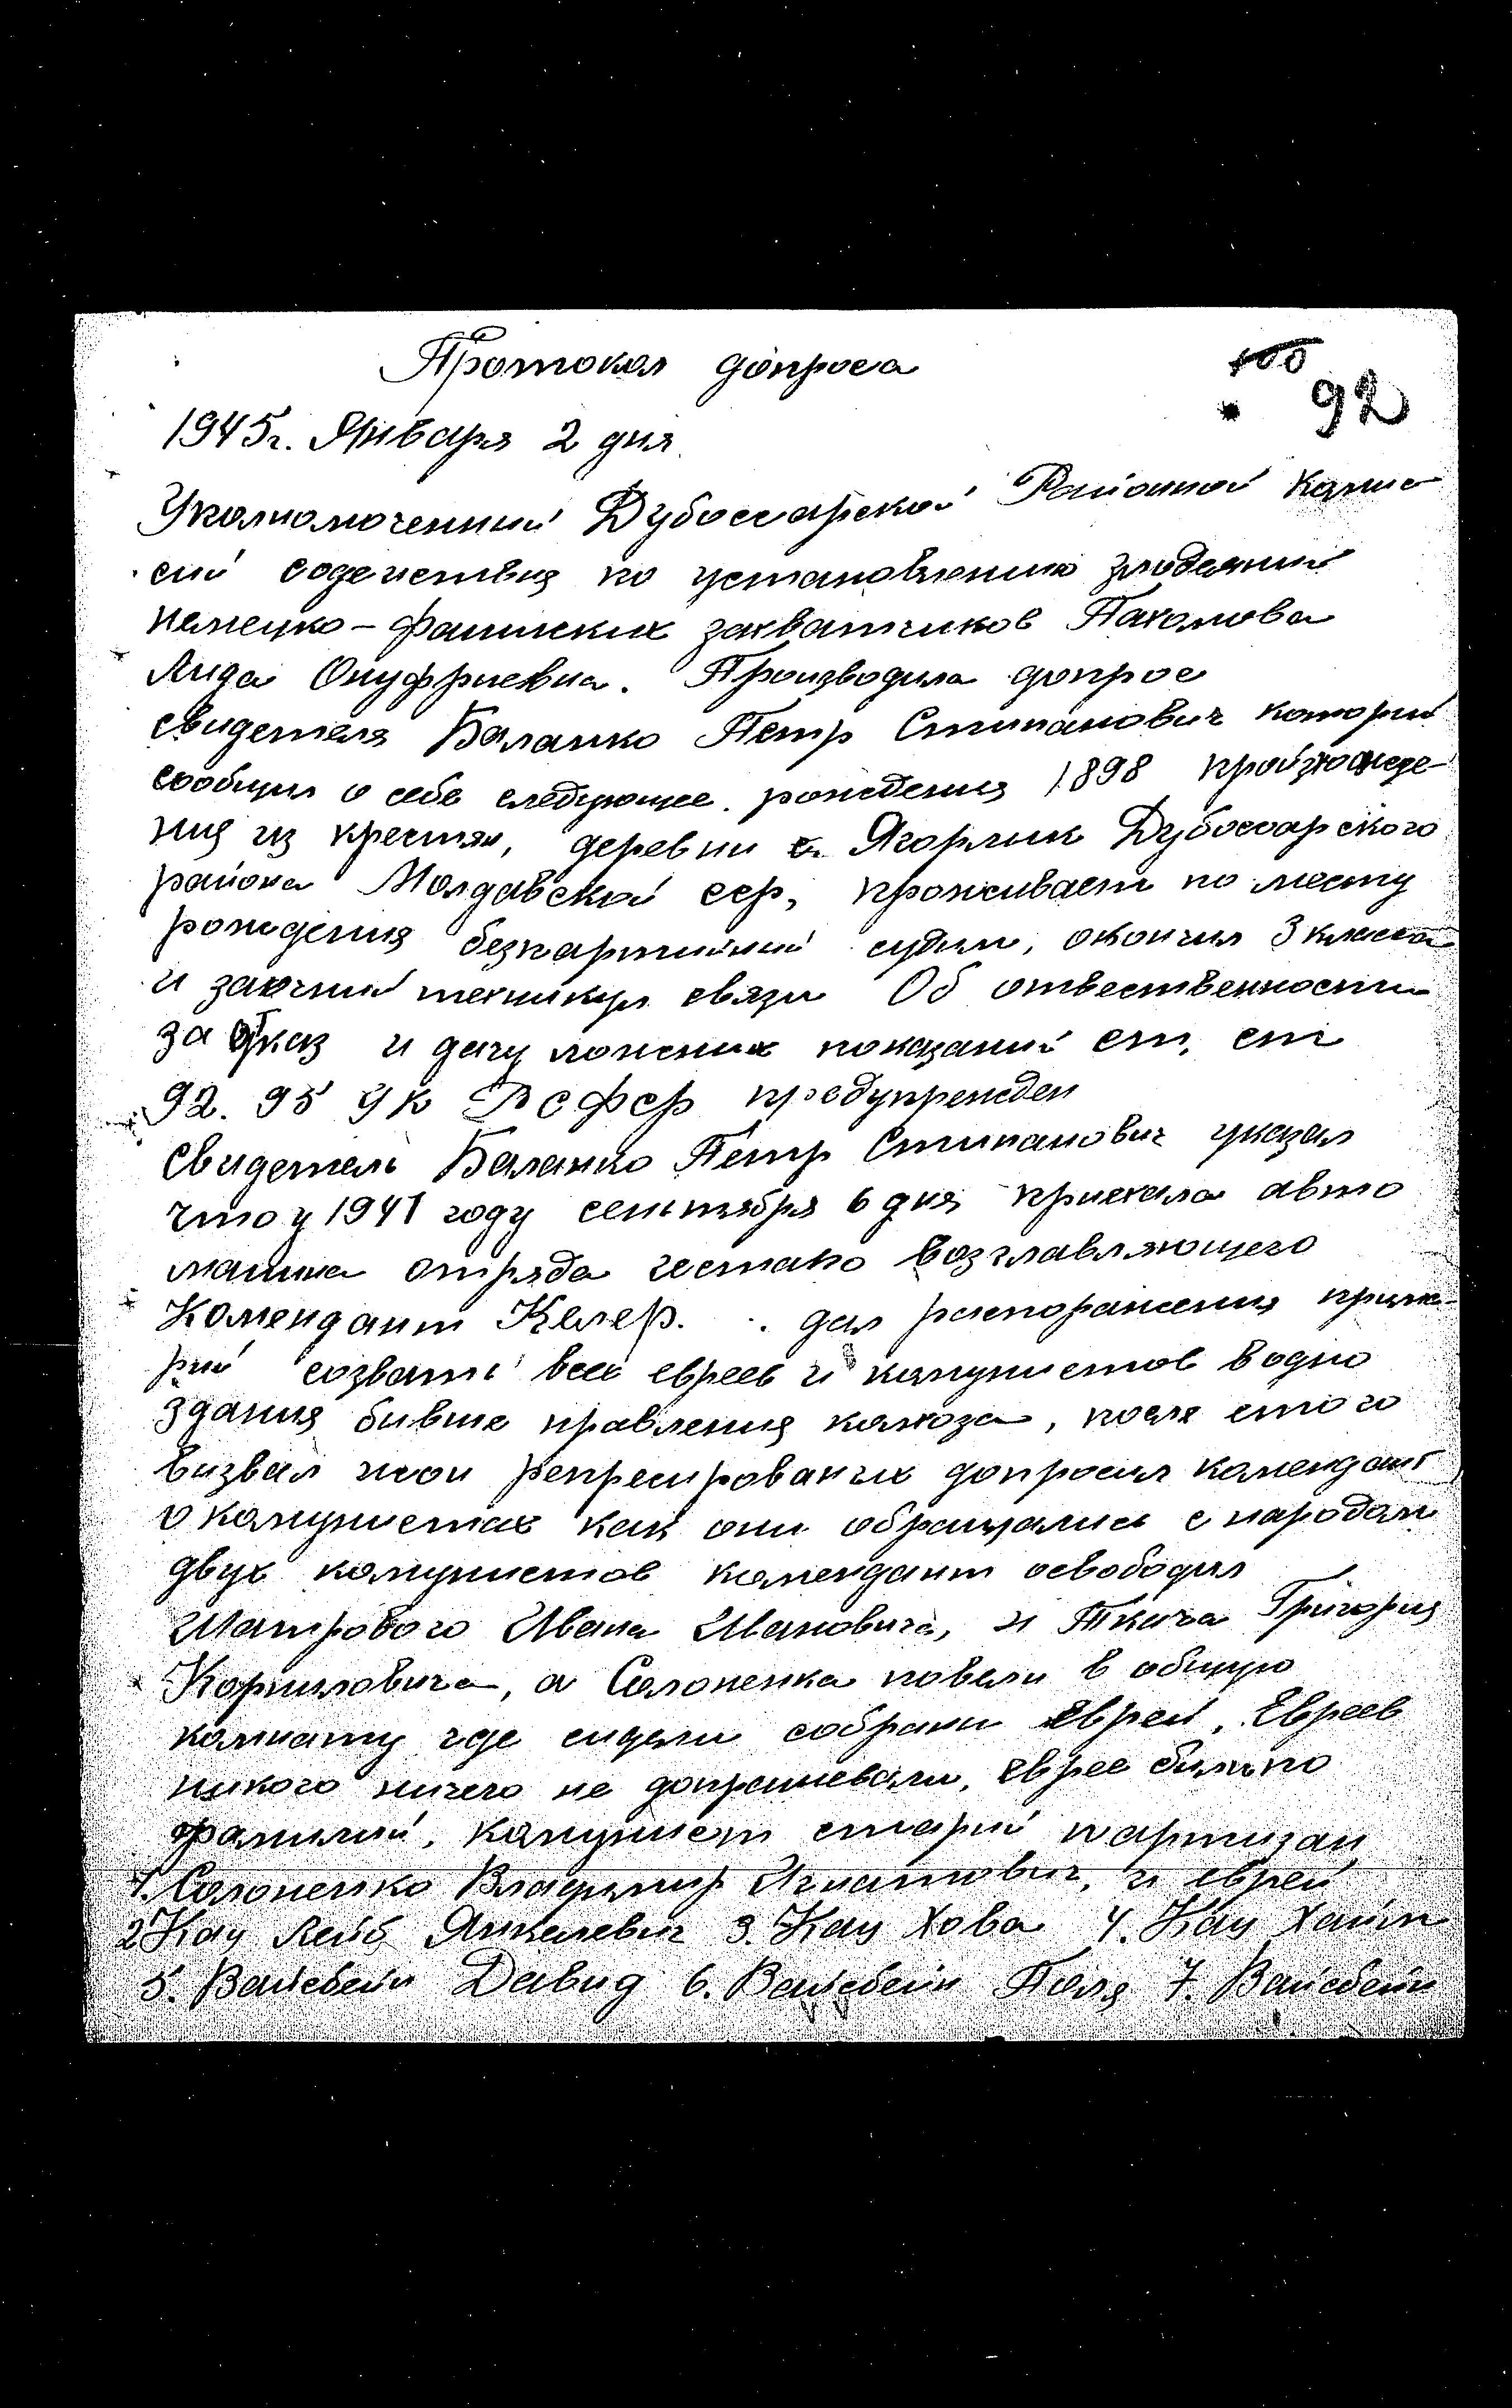 Протокол допроса
100
92
1945г. Января 2 дня
Уполномоченний Дубоссарской Районной Комис
сий содействия по установлению злодеяний
немецко-фашиских захватчиков Пахомова
Лида Онуфриевна. Производила допрос
свидетеля Баланко Петр Стипанович которий
сообщил о себе следующее. рождения 1898 происхожде-
ния из крестян, деревни Ягорлик Дубоссарского
района Молдавской сср, проживает по месту
рождения безпартийний судим, окончил 3 класса
и заочний техникум связи Об отвественности
за отказ и дачу ложних показаний ст. ст
92. 95 УК РСФСР предупрежден
Свидетель Баланко Петр Стипанович указал
что у 1941 году сентября 6 дня приехала авто
машина отряда гестапо возглавляющего
Комендант Келер. дал распоражения прима-
рий созвать всех евреев и комунистов в одно
здания бивше правления колхоза, после етого
визвал жон репресированих допросил комендант
о комунистах как они обращались с народом
двух комунистов комендант освободил
Шатрового Ивана Ивановича, и Ткача Григория
Корниловича, а Солоненка повели в общую
комнату где сидели собрани Евреи. Евреев
никого ничего не допрашевали, Еврее били по
фамилий, комунист старий партизан
1. Солоненко Владимир Игнатович, и евреи
2 Кац Лейб Янкелевич 3. Кац Хова 4. Кац Хаим
5. Вайсбейн Давид 6. Вайсбейн Поля 7. Вайсбейн